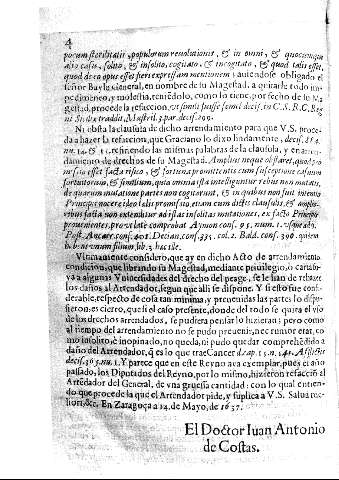 4
porum sterilitatis, populorum revolutionis, & in omni, & quocumque
alio casu, solito, & insolito, cogitato, & incogitato, & quod talis esset,
quod de eo opus esset fieri expressam mentionem; auiendose obligado el
señor Bayle General, en nombre de su Magestad, a quitarle todo im-
pedimento, y molestia, teniēdolo, como lo tiene, por fecho de su Ma
gestad, procede la refaccion,
Ni obsta la clausula de dicho arrendamiento para que V.S. proce-
da a hazer la refaccion, que Graciano lo dixo lindamente, decis. 
nu. 14. & 15. refiriendo las mismas palabras de la clausula, y en arren-
damiento de drechos de su Magestad. Amplius neque obstaret, quod pro
misisset facta risico, & fortuna promittentis cum susceptione casuum
fortuitorum, & similium, quia omnia ista intelliguntur rebus non mutatis,
de quarum mutatione partes non cogitarunt, & in quibus non sunt imputa
Principi nocere ideo talis promissio, etiam cum dictis clausulis, & amplio-
ribus facta non extenditur ad istas insolitas mutationes, ex facto Principis
prouenientes, prout late comprobat Aymon cons. 95. num. 1. 
Post. Ancar. cons. 401. Decian. cons. 335. col. 2. Bald. cons. 398. 
Vltimamente considero, que ay en dicho Acto de arrendamiento
condicion, que librando su Magestad, mediante priuilegio, o carta bl
va a algunas Vniuersidades del drecho del peage, se le han de rebatir
los daños al Arrendador, segun que alli se dispone. Y si esto fue consi
derable, respecto de cosa tan minima, y preuenidas las partes lo dispu-
sieron, es cierto, que si el caso presente, donde del todo se quita el vso
de los drechos arrendados, se pudiera pensar lo huzieran; pero como
al tiempo del arrendamiento no se pudo preuenir, nec timori erat, co
mo insolito, è inopinado, no queda, ni pudo quedar comprehēdido a
daño del Arrendador, q̃ es lo que trae Cancer 
decis. 365. nu. 1. Y parece que en este Reyno aya exemplar, pues el año
pasado, los Diputados del Reyno, por lo mismo, hizieron refacciō al
Arrēdador del General, de vna gruessa cantidad: con lo qual entien-
do que procede la que el Arrendador pide, y suplica a V.S. Salua me-
liori, &c. En Zaragoça a 14. de Mayo, de 1637.
El Doctor Iuan Antonio
de Costas.